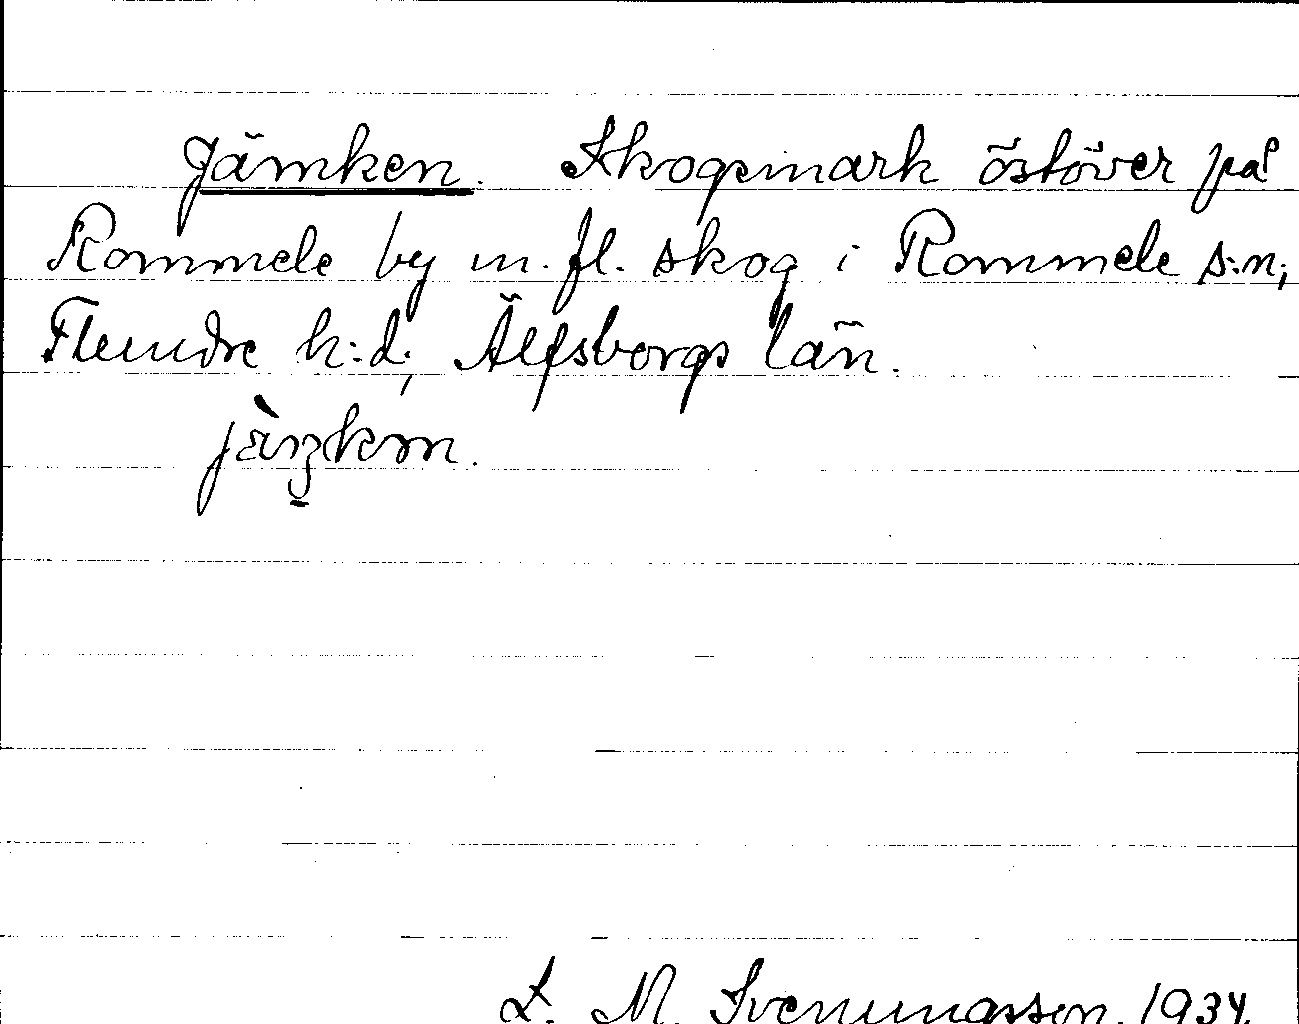 Jämken. Skogsmark östöver på
Rommele by m. fl. skog i Rommele s:n;
Flundre h:d; Älfsborgs län.
S. M. Svenungsson. 1934.